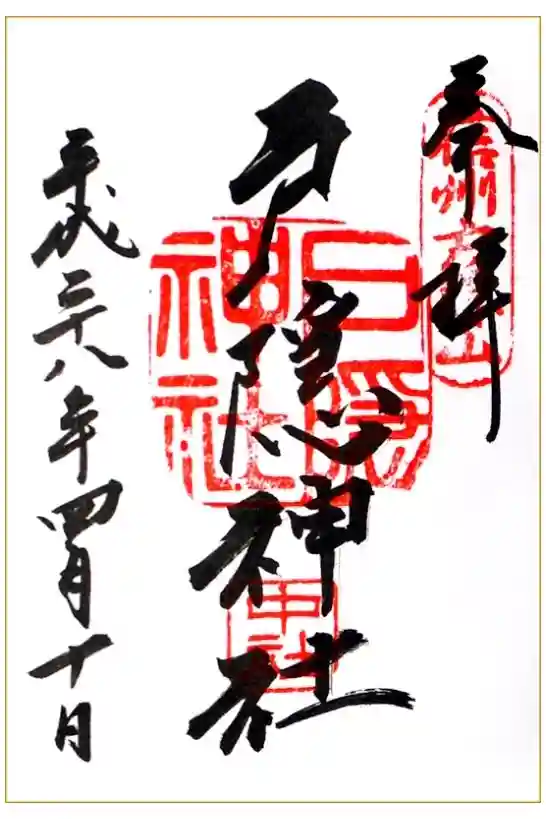 奉拝
信州戸隠山
戸隠神社
戸隠
神社
中社
平成二十八年四月十日